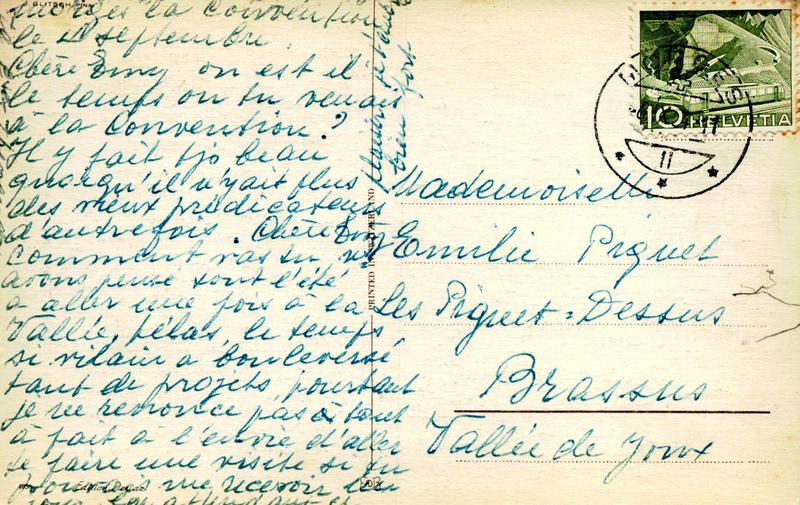 J. GLITSCH, PINX.
la Convention
le 4 septembre.
Chère Emy, on est il
le temps on tu venais
à la Convention?
Il y fait tjo beau
quoiqu'il n'y ait plus
des vieux prédicateurs
d'autrefois. Chère Emy
comment vas tu,
avons pensé tout l'été
a aller une fois à la
Vallée, hélas, le temps
si vilain a bouleversé
tant de projets, pourtant
je ne renonce pas à tout
à fait à l'envie d'aller
te faire une visite si tu
me recevoir
bien fort
PRINTED IN SWITZERLAND
Edition
HELVETIA
10
11
Mademoiselle
Emilie Piguet
Les Piguet=Dessus
Brassus
Vallée de Joux